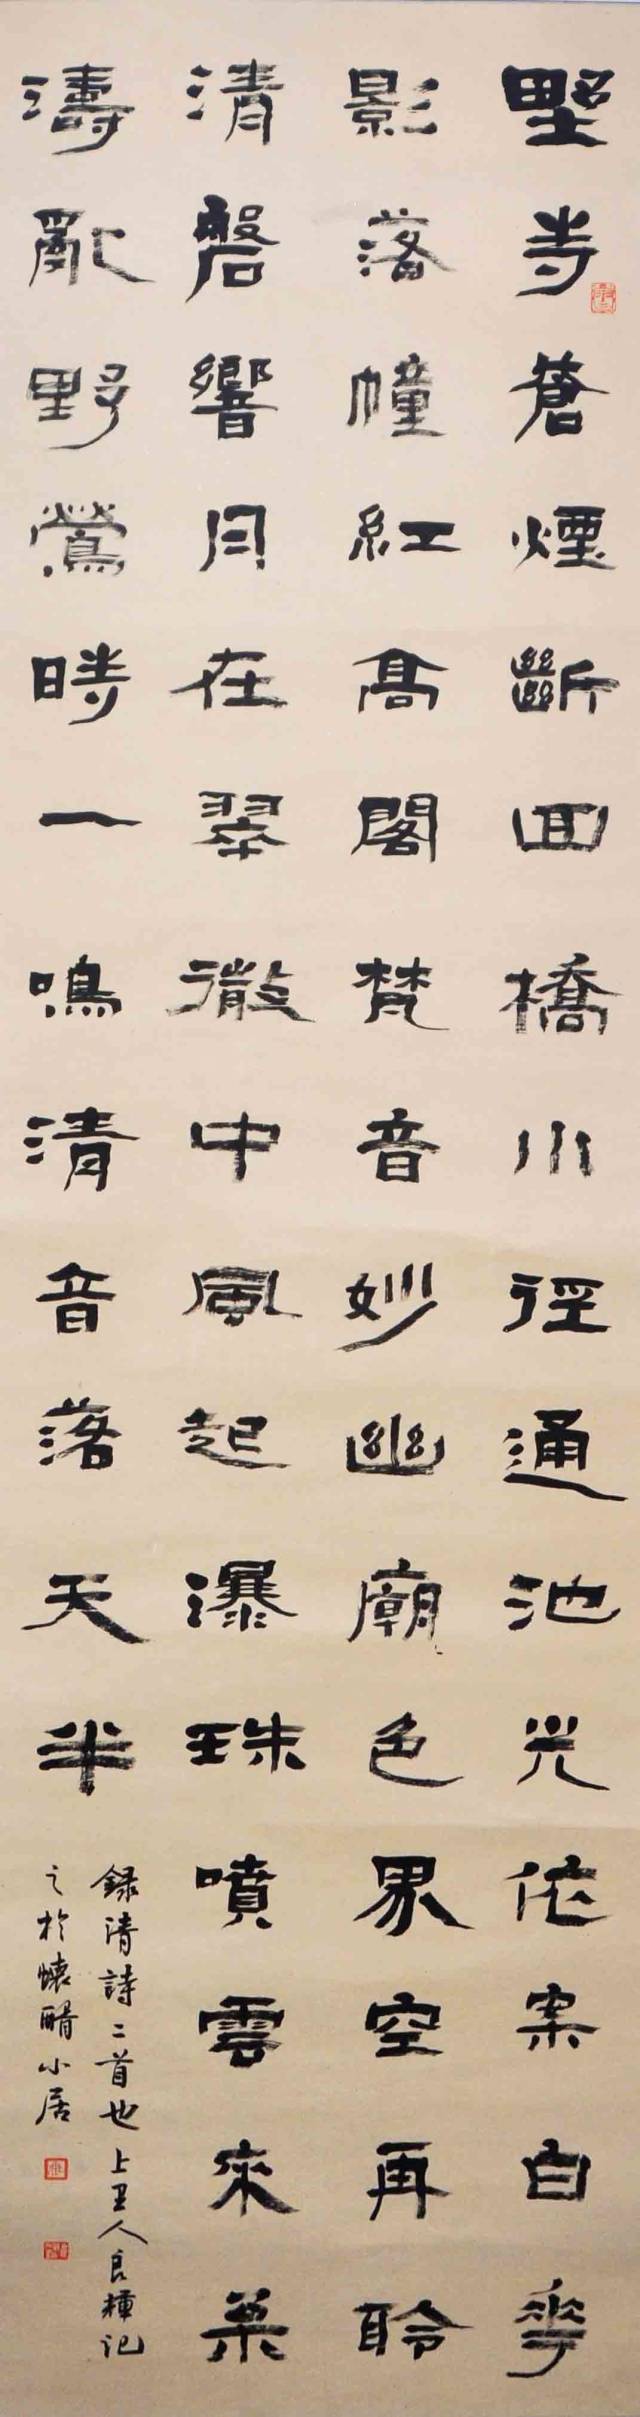 野寺蒼煙斷回橋小徑通池光依案白花
影落幢紅高閣梵音妙幽廟色界空再聆
清磬響月在翠微中風起瀑珠噴雲來巢
濤亂野鶯時一鳴清音落天半
錄清詩二首也上五人良種記
之於懷腯小居